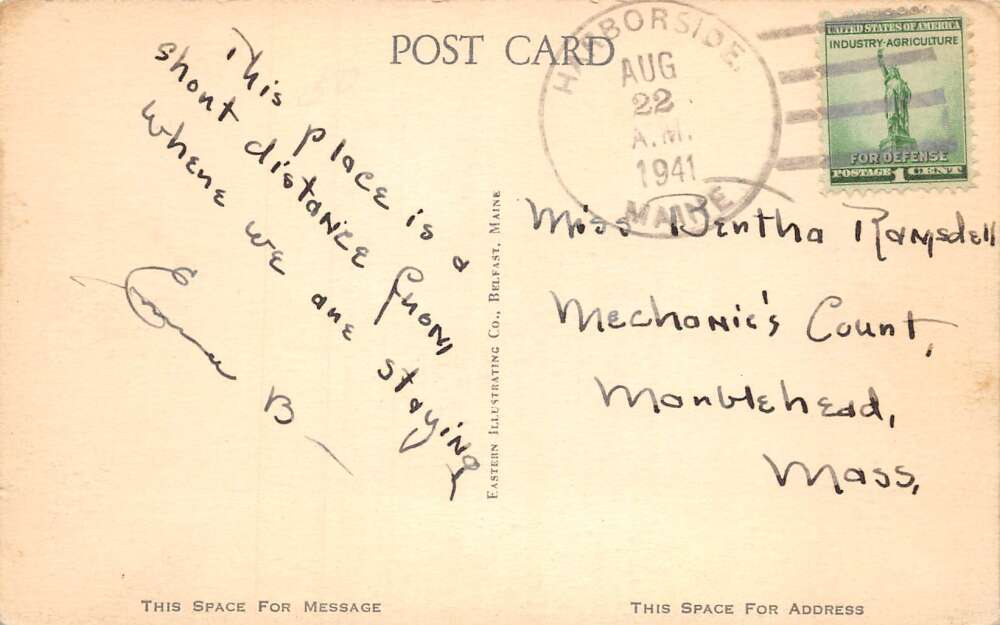 POST CARD
HARBORSIDE,
AUG
22
A.M.
1941
MAINE
UNITED STATES OF AMERICA
INDUSTRY-AGRICULTURE
FOR DEFENSE
POSTAGE 1 CENT
This place is a
short distance from
where we are staying
Emma B
EASTERN ILLUSTRATING CO., BELFAST, MAINE
Miss Bertha Ramsdell
Mechanic's Court,
Marblehead,
Mass,
THIS SPACE FOR MESSAGE
THIS SPACE FOR ADDRESS